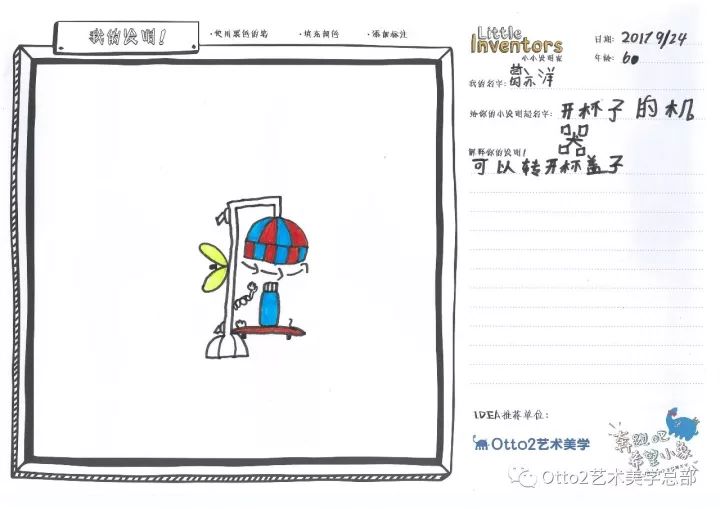 我的发明!
·使用黑色的笔 ·填充颜色 ·添加标注
Little
Inventors
小小发明家
日期: 2017 9/24
年龄: 6
我的名字: 葛亦洋
给你的小发明起名字: 开杯子的机
器
解释你的发明!
可以转开杯盖子
IDEA推荐单位:
Otto2艺术美学
奔跑吧
希望小象
Otto2艺术美学总部